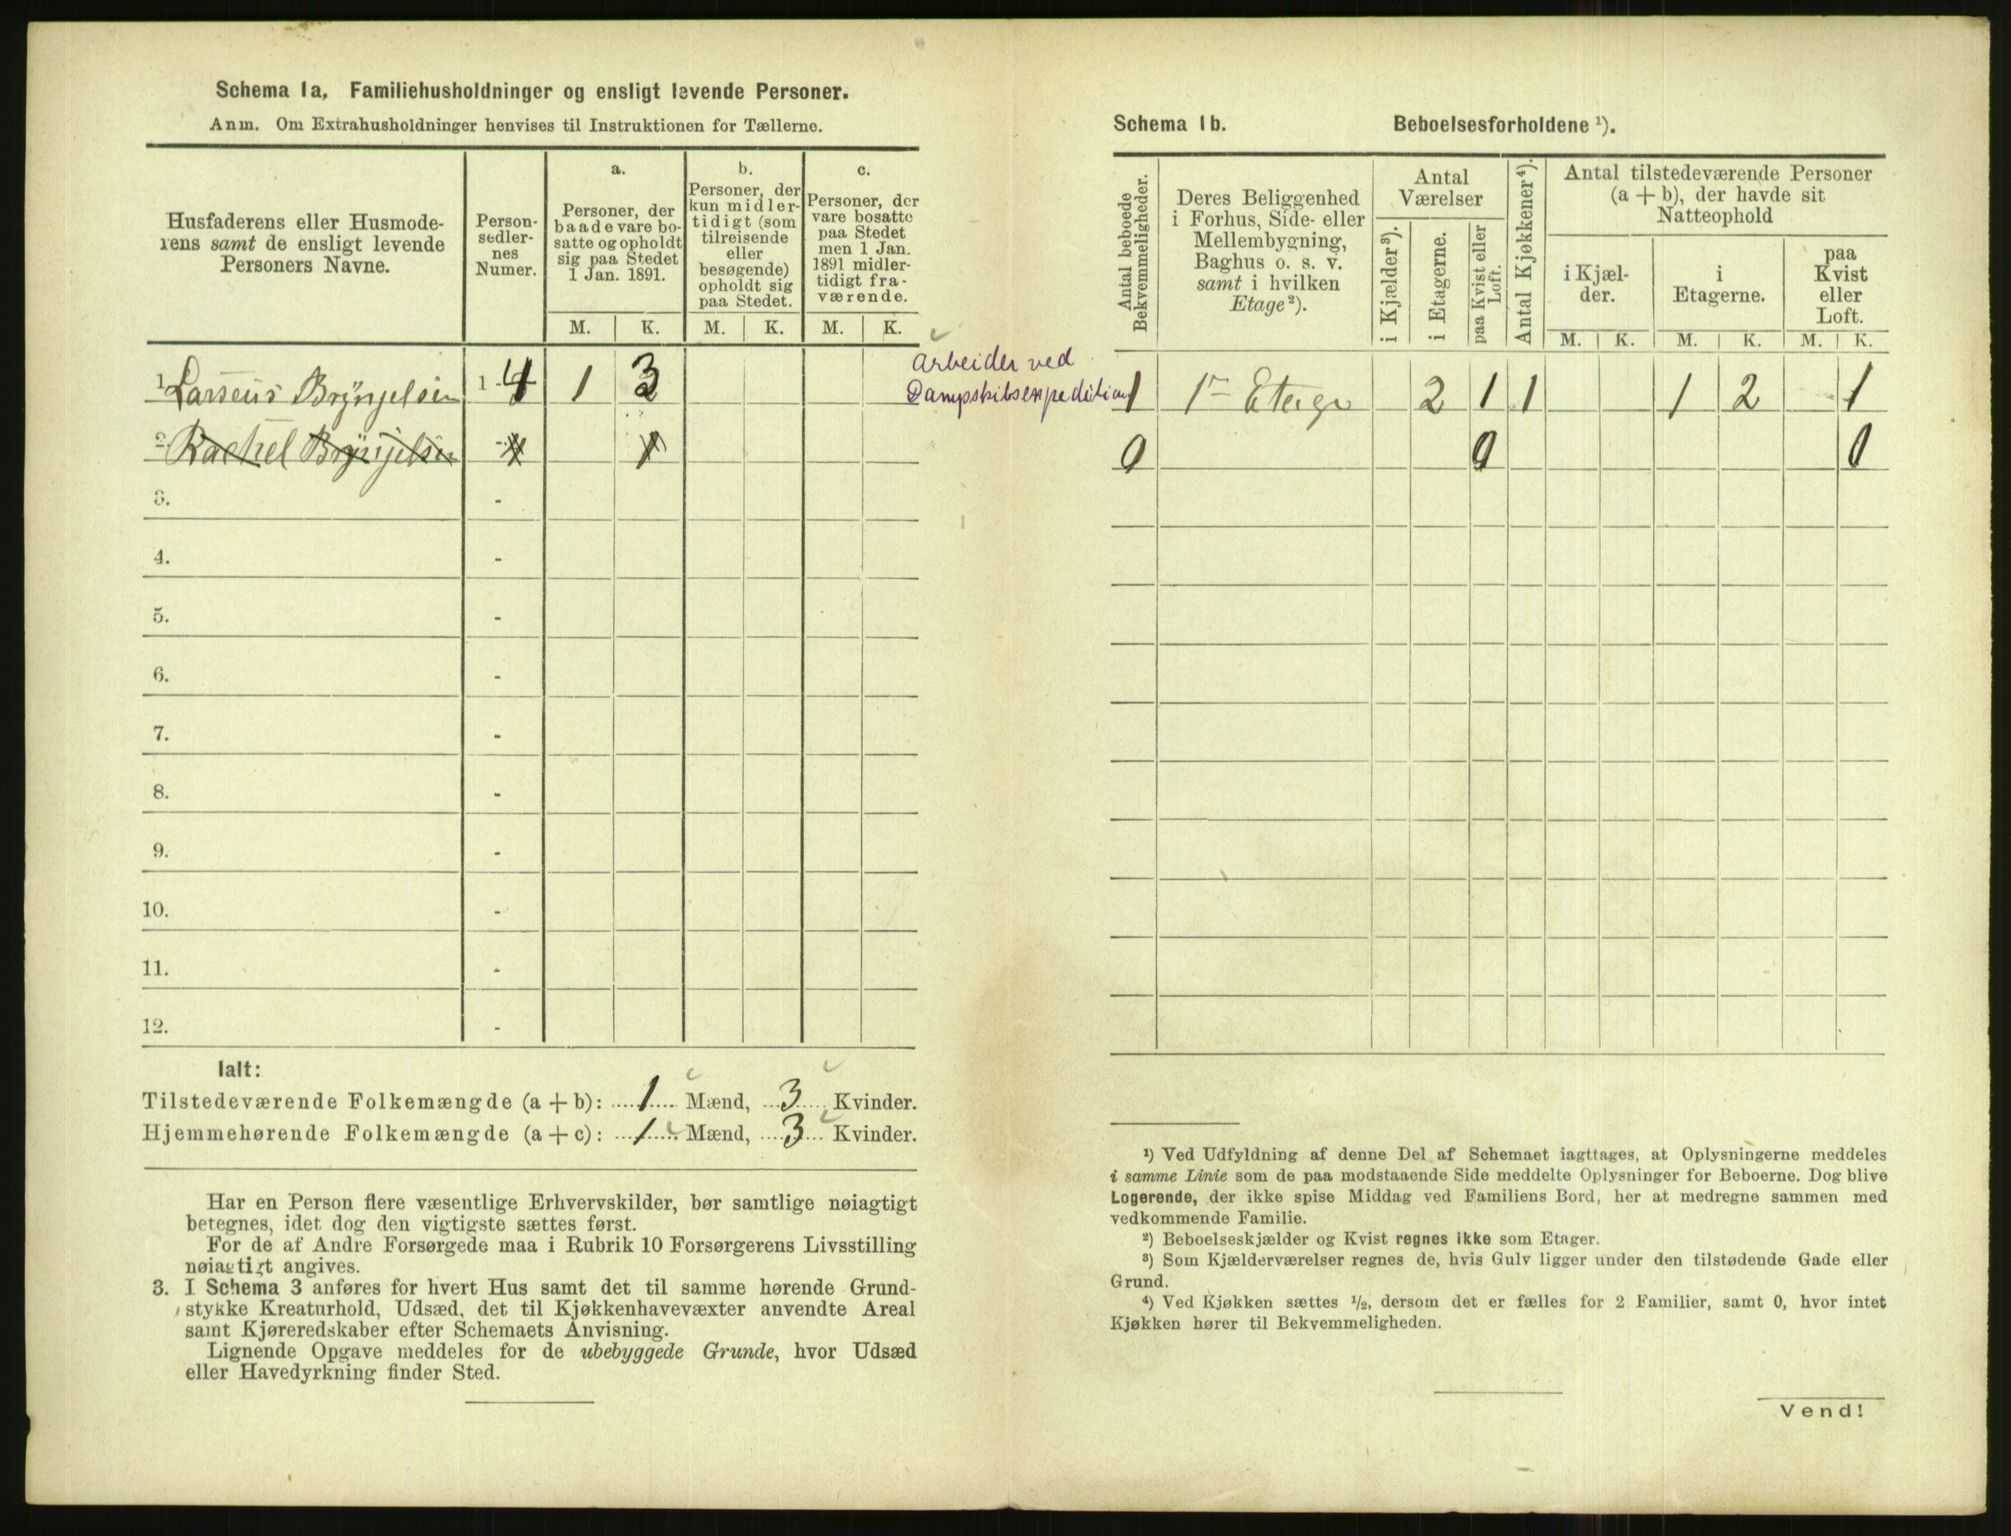 Schema 1a, Familiehusholdninger og ensligt levende Personer.
Anm. Om Extrahusholdninger henvises til Instruktionen for Tællerne.
Husfaderens eller Husmode-
rens samt de ensligt levende
Personers Navne.
Person-
sedler-
nes
Numer.
a.
Personer, der
baade vare bo-
satte og opholdt
sig paa Stedet
1 Jan. 1891.
b.
Personer, der
kun midler-
tidigt (som
tilreisende
eller
besøgende)
opholdt sig
paa Stedet.
c.
Personer, der
vare bosatte
paa Stedet
men 1 Jan.
1891 midler-
tidigt fra-
værende.
M. K. M. K. M. K.
1 Larseus Brynjelsen 1 - 4 1 3
Arbeider ved
Dampskibsexpedition
2 Rachel Brynjelsen - 1
3. -
4. -
5. -
6. -
7. -
8. -
9. -
10. -
11. -
12. -
Ialt:
Tilstedeværende Folkemængde (a + b): 1 Mænd, 3 Kvinder.
Hjemmehørende Folkemængde (a + c): 1 Mænd, 3 Kvinder.
Har en Person flere væsentlige Erhvervskilder, bør samtlige nøiagtigt
betegnes, idet dog den vigtigste sættes først.
For de af Andre Forsørgede maa i Rubrik 10 Forsørgerens Livsstilling
nøiagtigt angives.
3. I Schema 3 anføres for hvert Hus samt det til samme hørende Grund-
stykke Kreaturhold, Udsæd, det til Kjøkkenhavevæxter anvendte Areal
samt Kjøreredskaber efter Schemaets Anvisning.
Lignende Opgave meddeles for de ubebyggede Grunde, hvor Udsæd
eller Havedyrkning finder Sted.
Schema 1b. Beboelsesforholdene ¹).
Antal beboede
Bekvemmeligheder.
Deres Beliggenhed
i Forhus, Side- eller
Mellembygning,
Baghus o. s. v.
samt i hvilken
Etage²).
Antal
Værelser
i Kjælder³).
i Etagerne.
paa Kvist eller
Loft.
Antal Kjøkkener⁴).
Antal tilstedeværende Personer
(a + b), der havde sit
Natteophold
i Kjæl-
der.
i
Etagerne.
paa
Kvist
eller
Loft.
M. K. M. K. M. K.
1 1ᵉ Etage 2 1 1 1 2 1
0 0 0
¹) Ved Udfyldning af denne Del af Schemaet iagttages, at Oplysningerne meddeles
i samme Linie som de paa modstaaende Side meddelte Oplysninger for Beboerne. Dog blive
Logerende, der ikke spise Middag ved Familiens Bord, her at medregne sammen med
vedkommende Familie.
²) Beboelseskjælder og Kvist regnes ikke som Etager.
³) Som Kjælderværelser regnes de, hvis Gulv ligger under den tilstødende Gade eller
Grund.
⁴) Ved Kjøkken sættes ½, dersom det er fælles for 2 Familier, samt 0, hvor intet
Kjøkken hører til Bekvemmeligheden.
Vend!